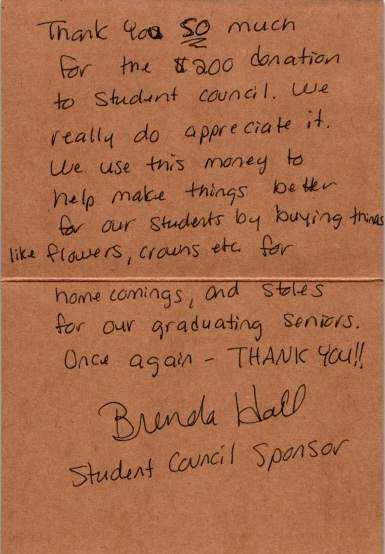 Thank You SO much
for the $200 donation
to Student council. We
really do appreciate it.
We use this money to
help make things better
for our students by buying things
like flowers, crowns etc. for
homecomings, and stoles
for our graduating seniors.
Once again - THANK YOU!!
Brenda Hall
Student Council Sponsor